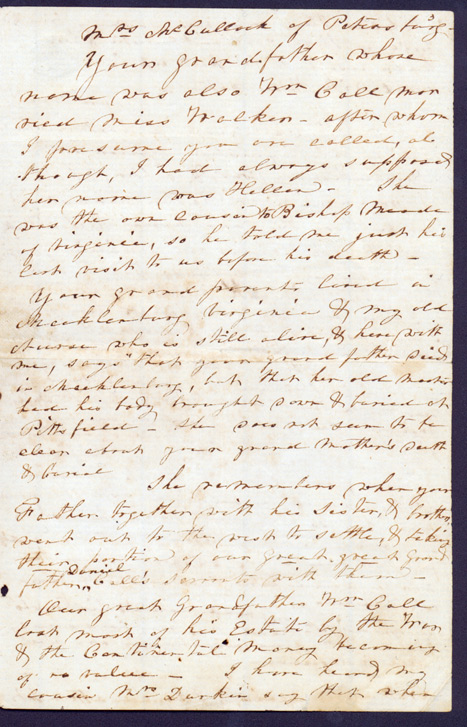 Mrs McCullock of Petersburg -
Your grandfather whose
name was also Wm Call mar
ried Miss Walker - after whom
I presume you are called, al
though, I had always supposed
her name was Hellen - She
was the own cousin to Bishop Meade
of Virginia, so he told me just his
last visit to us before his death -
Your grand parents lived in
Mecklenburg Virginia & my old
nurse who is still alive, & here with
me, says "that your grand father died
in Mecklenburg, but that her old Master
had his body brought down & buried at
Pittsfield - She does not seem to be
clear about your grand Mother's death
& burial
She remembers when your
Father together with his sister, & brother
went out to the west to settle, & taking
their portion of our great great Grand
father Daniel Call's servants with them -
Our great Grandfather Wm Call
lost most of his Estate by the War
& the Continental Money becoming
of no value - I have heard my
cousin Mrs Durkin say that when